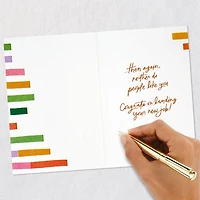 then again,
neither do
people like you
Congrats on landing
your new job!